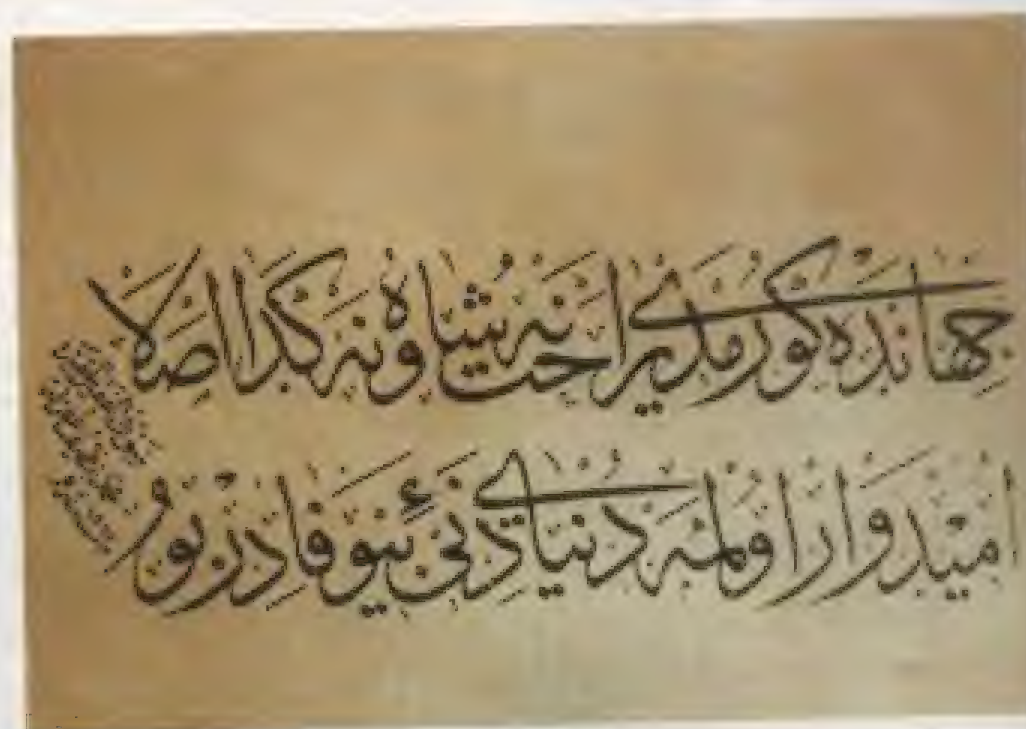 جهانده كورمدی راحت نه شاه و نه كدا اصلا
اميدوار اولمه دنيای دنی بيوفادر بو